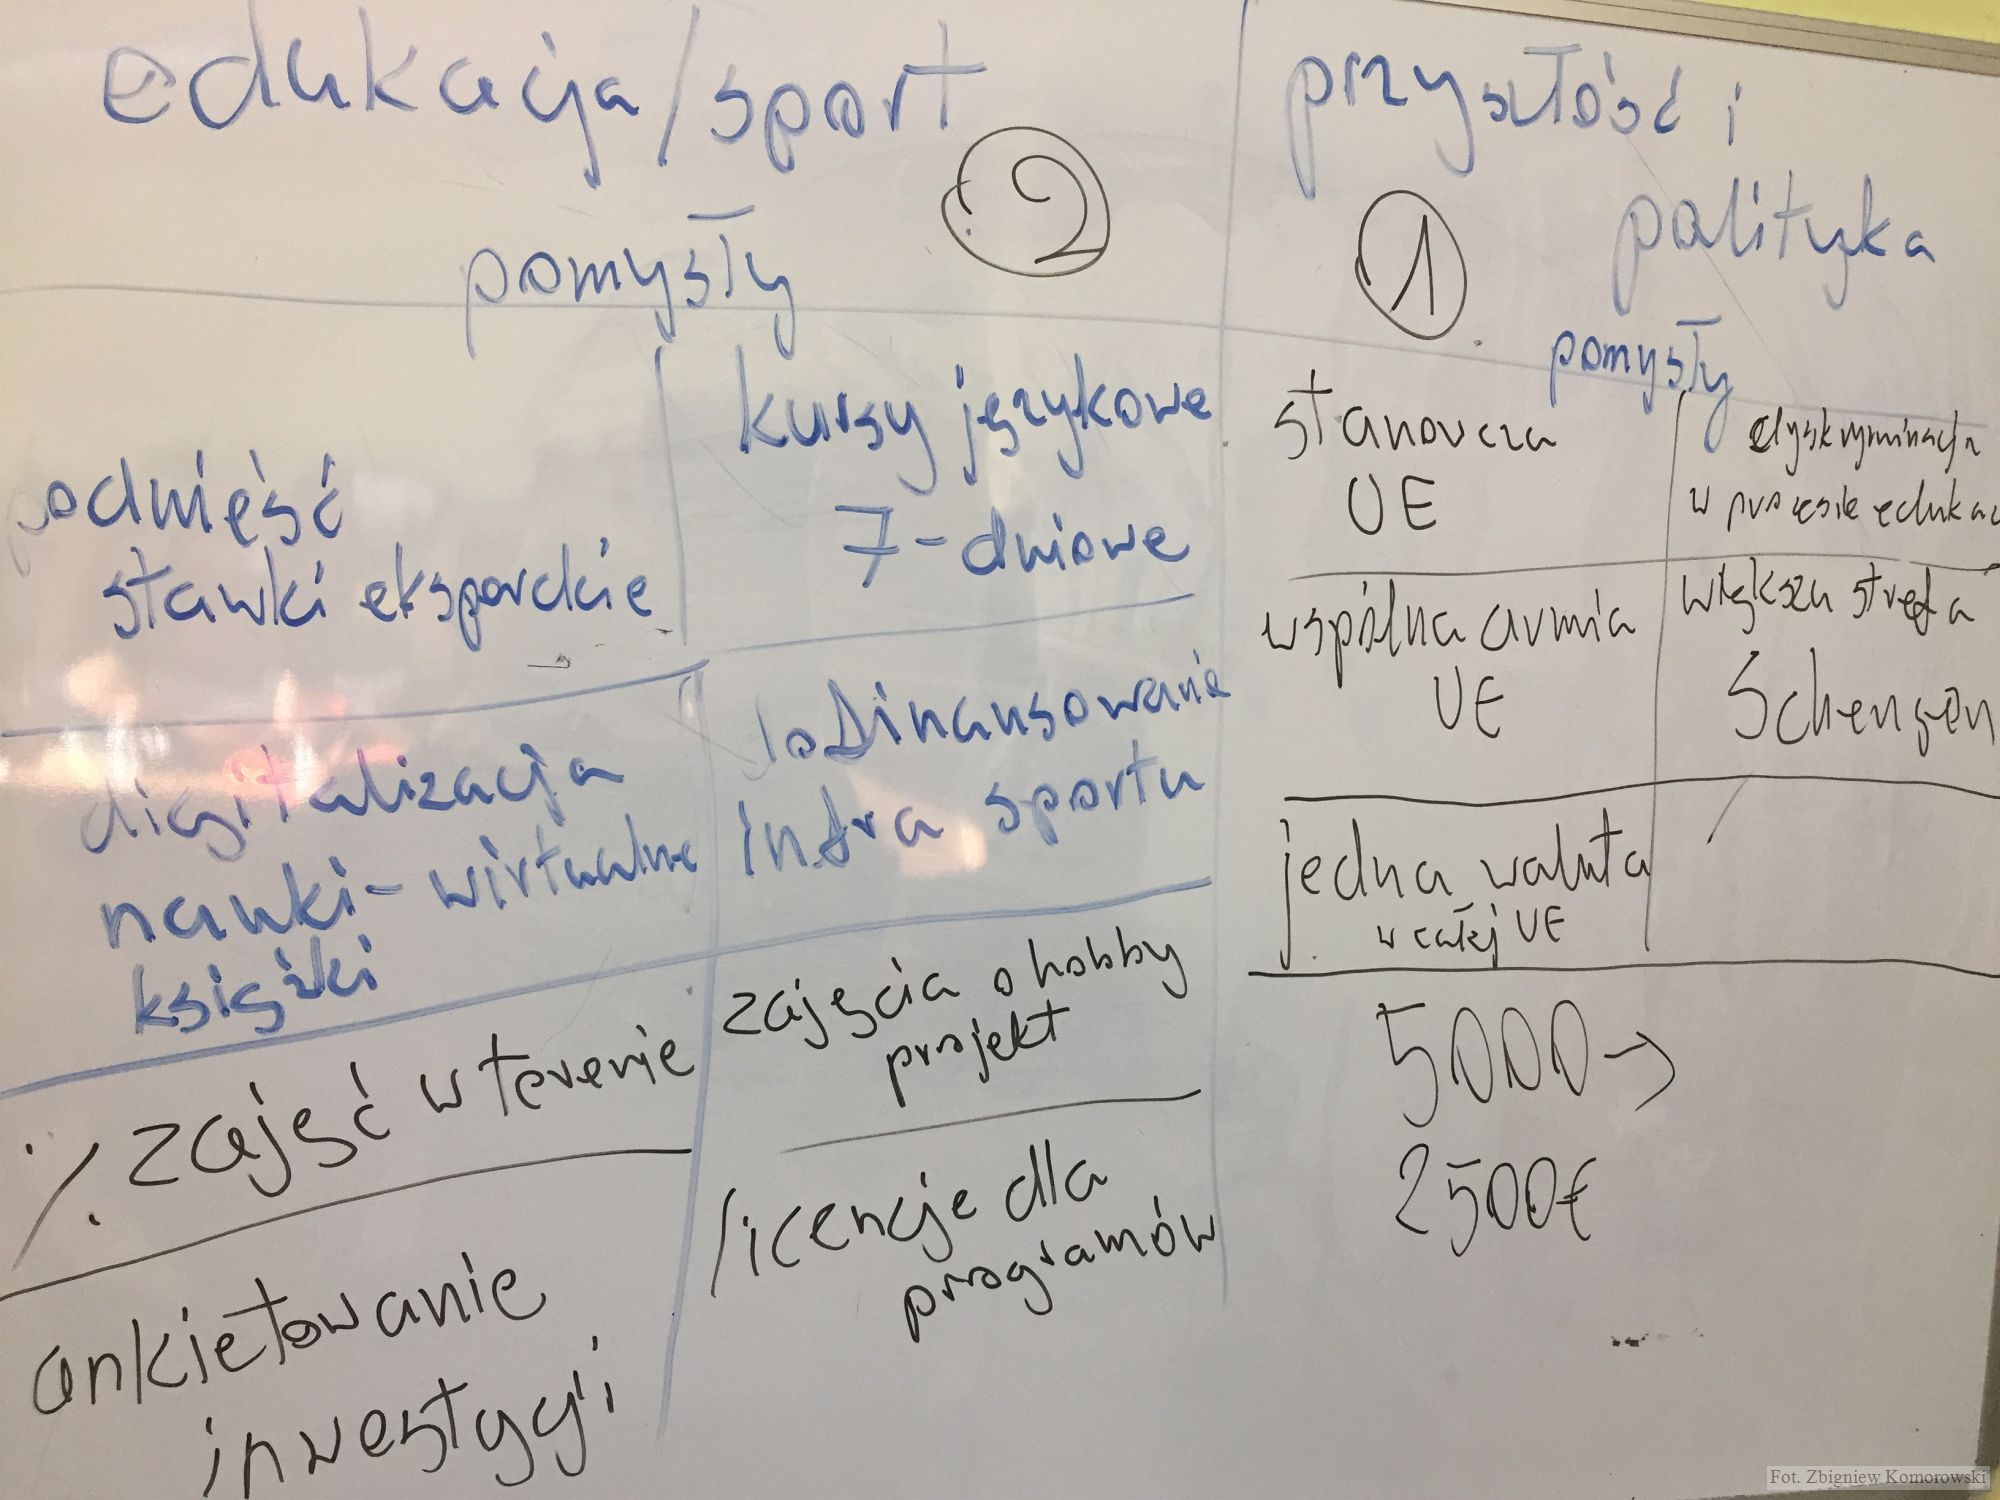 edukacja/sport
pomysły
2
podnieść
stawki eksperckie
kursy językowe
7-dniowe
digitalizacja
nauki - wirtualne
książki
dofinansowanie
infra sportu
% zajęć w terenie
zajęcia o hobby
projekt
ankietowanie
inwestycji
licencje dla
programów
przyszłość i
polityka
1
pomysły
stanowcza
UE
dyskryminacja
w procesie edukac
wspólna armia
UE
większa strefa
Schengen
jedna waluta
w całej UE
5000 →
2500€
Fot. Zbigniew Komorowski